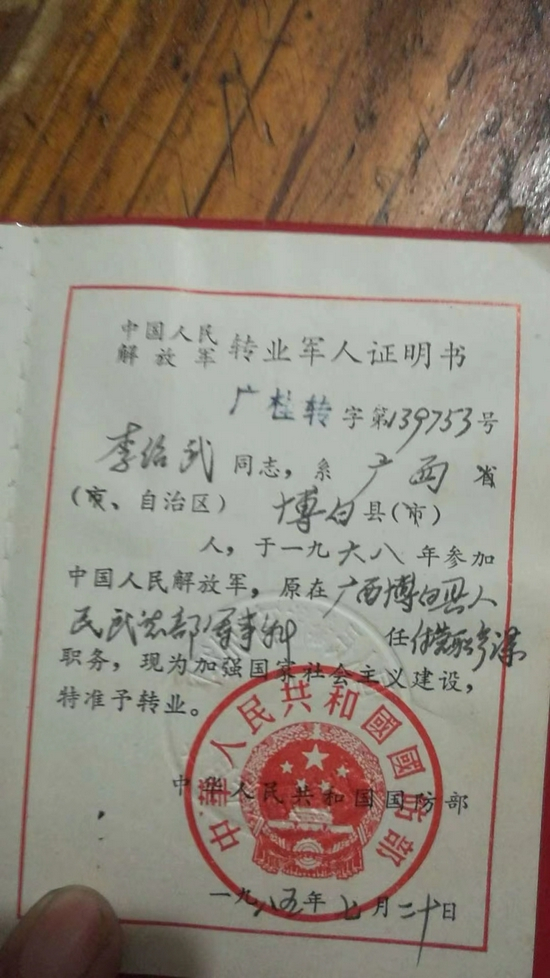 中国人民
解放军 转业军人证明书
广桂转字第139753号
李绍武同志，系广西省
（市、自治区）博白县（市）
人，于一九六八年参加
中国人民解放军，原在广西博白县人
民武装部军事科 任付营职参谋
职务，现为加强国家社会主义建设，
特准予转业。
中华人民共和国国防部
中华人民共和國國防部
一九八五年七月二十日